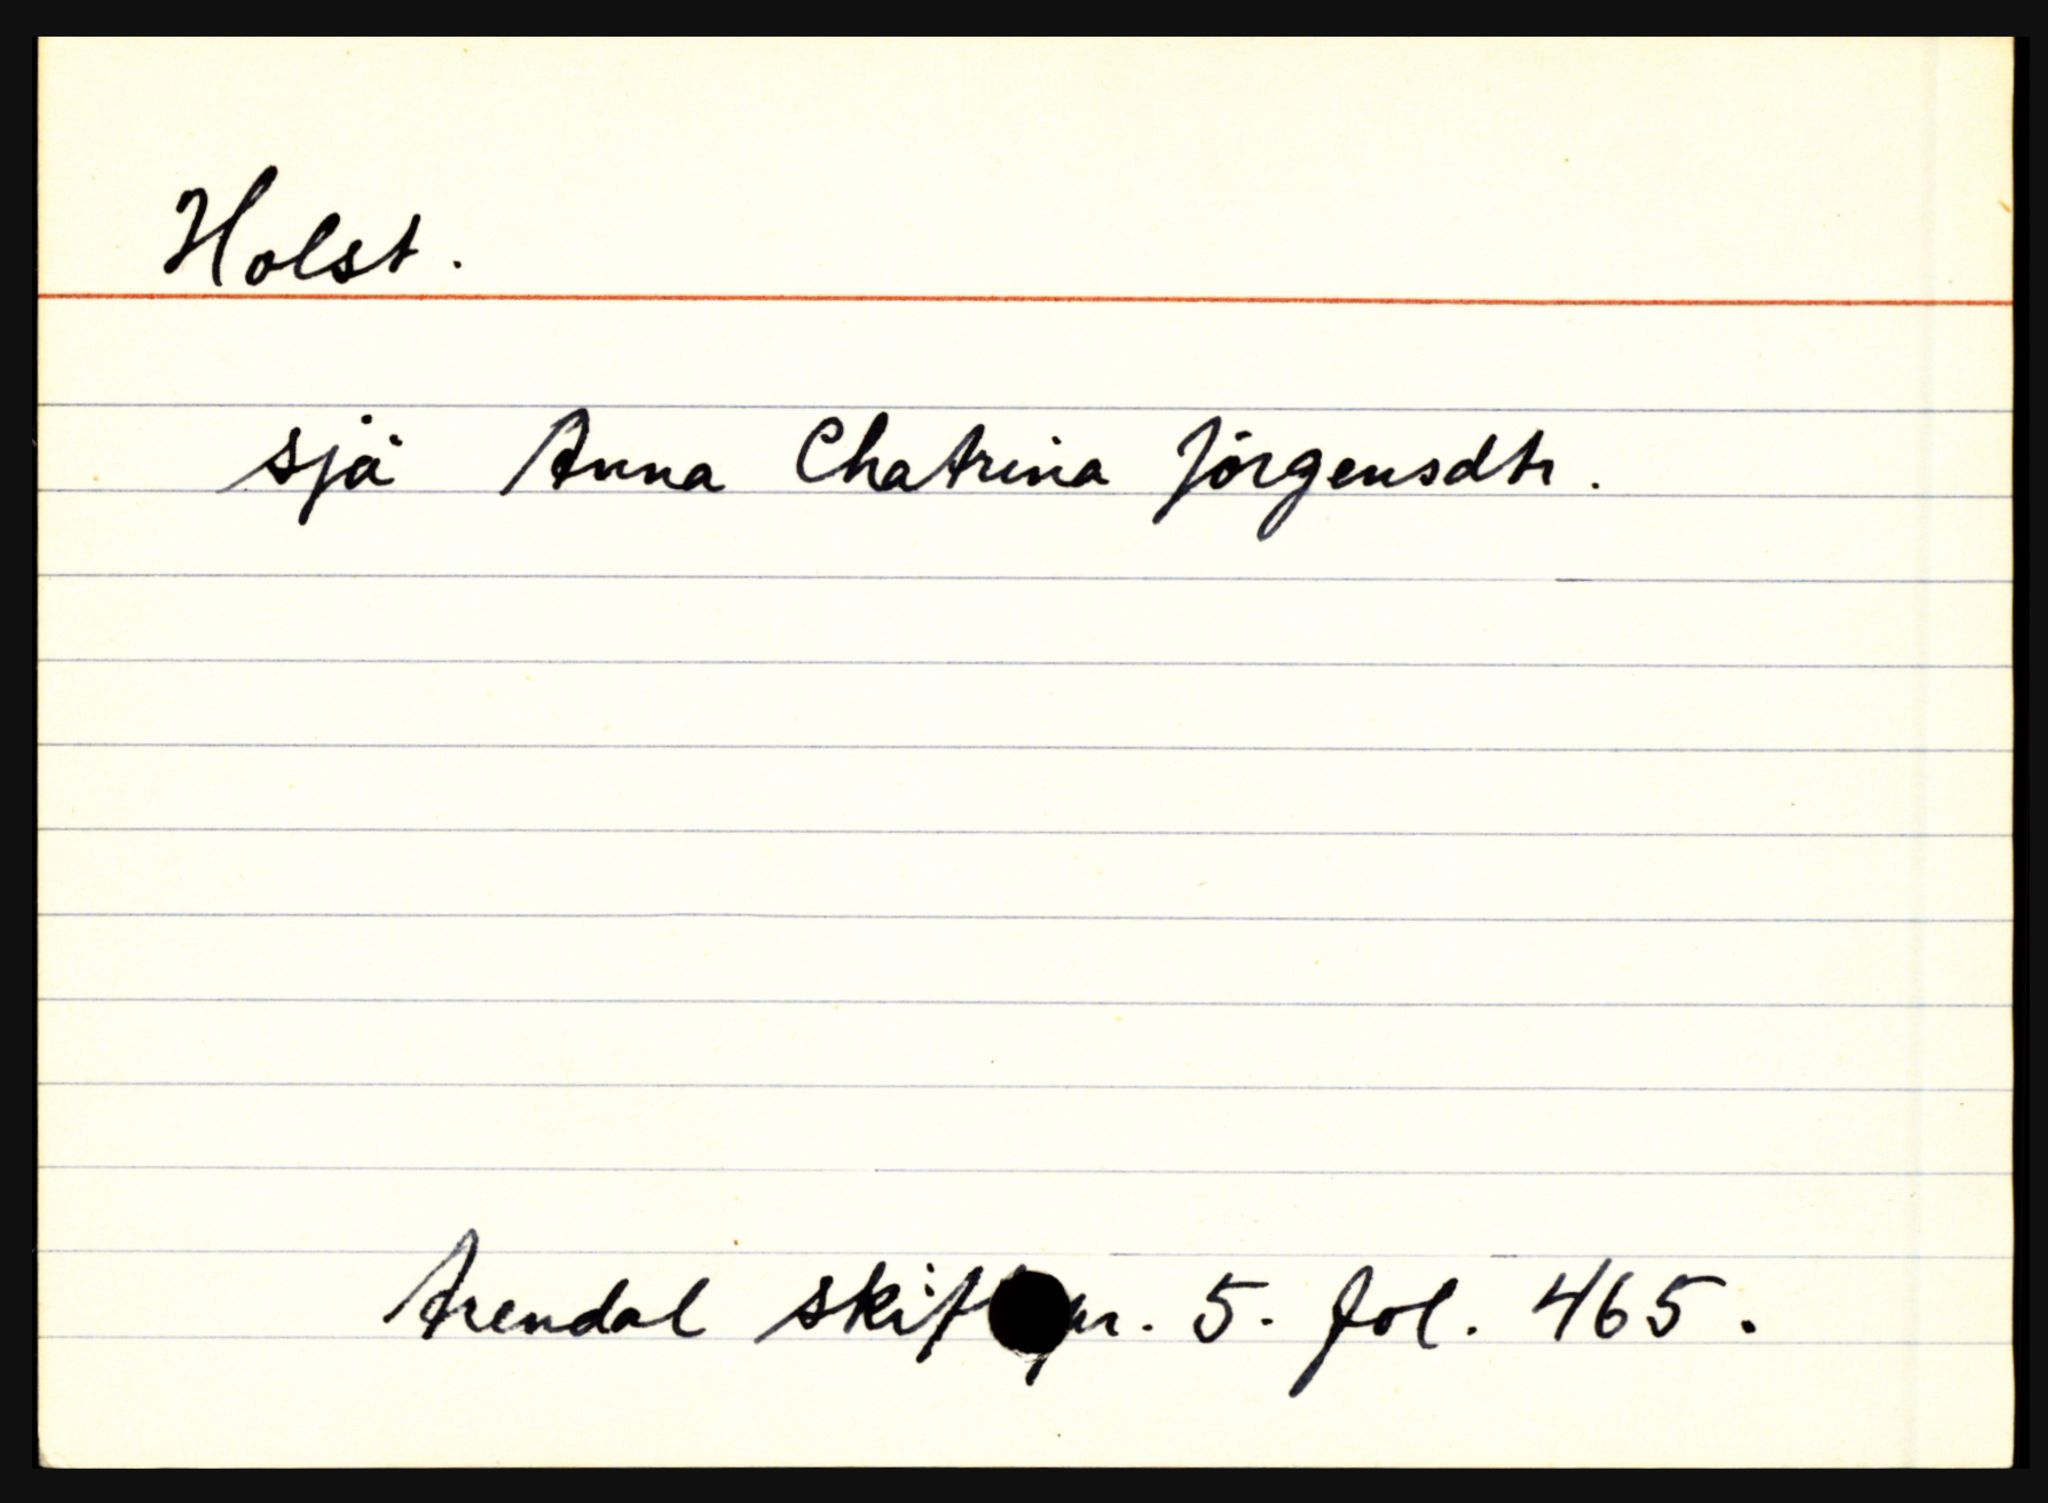 Holst.
sjå Anna Chatrina Jörgensdtr.
Arendal skiftpr. 5. fol. 465.